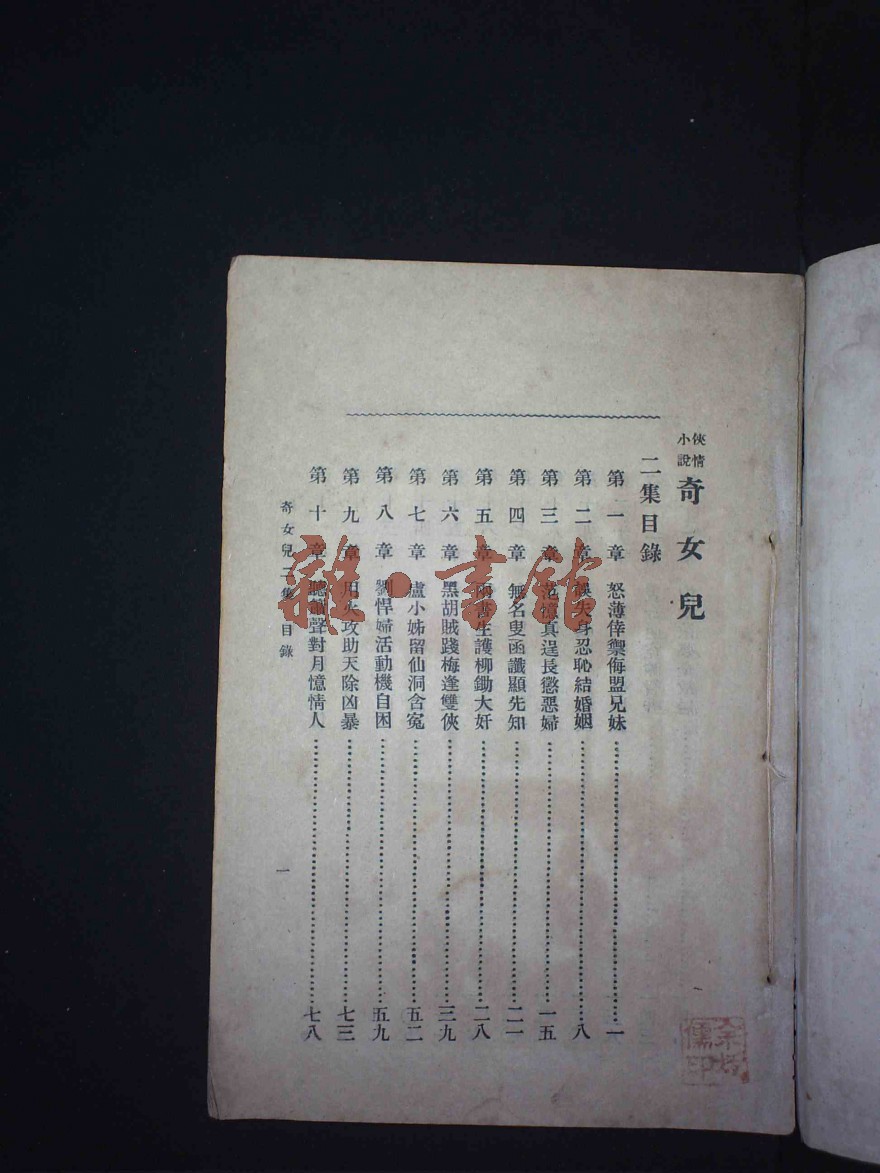 俠情
小說
奇女兒
二集目錄
第一章 怒薄倖禦侮盟兄妹……一
第二章 誤失身忍恥結婚姻……八
第三章 范憶真逞長懲惡婦……一五
第四章 無名叟函讖顯先知……二一
第五章 書生護柳鋤大奸……二八
第六章 黑胡賊踐梅逢雙俠……三九
第七章 盧小姊留仙洞含冤……五二
第八章 劉悍婦活動機自困……五九
第九章 用火攻助天除凶暴……七三
第十章 聽聲對月憶情人……七八
奇女兒二集目錄
一
雜·書館
儒印